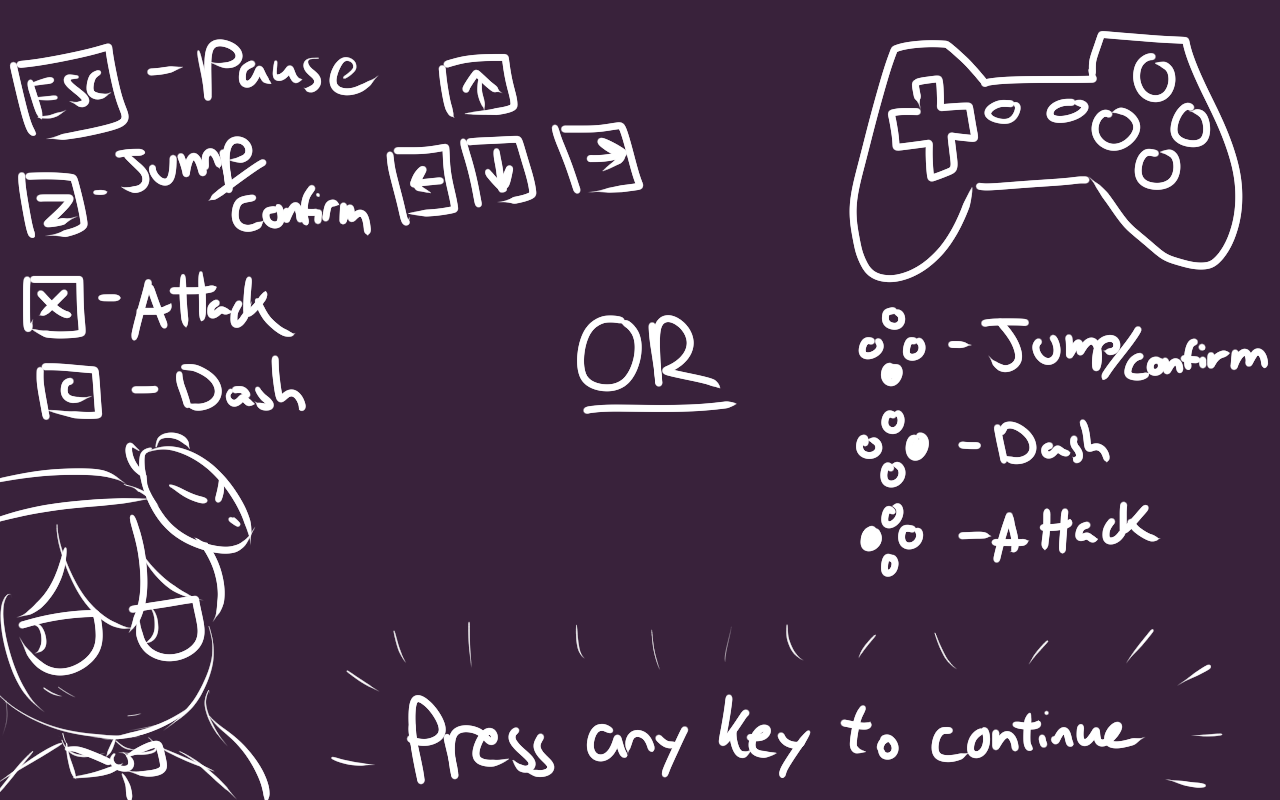 ESC - Pause
Z - Jump/
Confirm
X - Attack
C - Dash
↑
← ↓ →
OR
- Jump/confirm
- Dash
- Attack
Press any key to continue